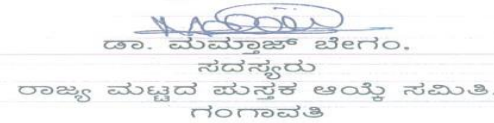 ಡಾ. ಮಮ್ತಾಜ್ ಬೇಗಂ.
ಸದಸ್ಯರು
ರಾಜ್ಯ ಮಟ್ಟದ ಪುಸ್ತಕ ಆಯ್ಕೆ ಸಮಿತಿ.
ಗಂಗಾವತಿ